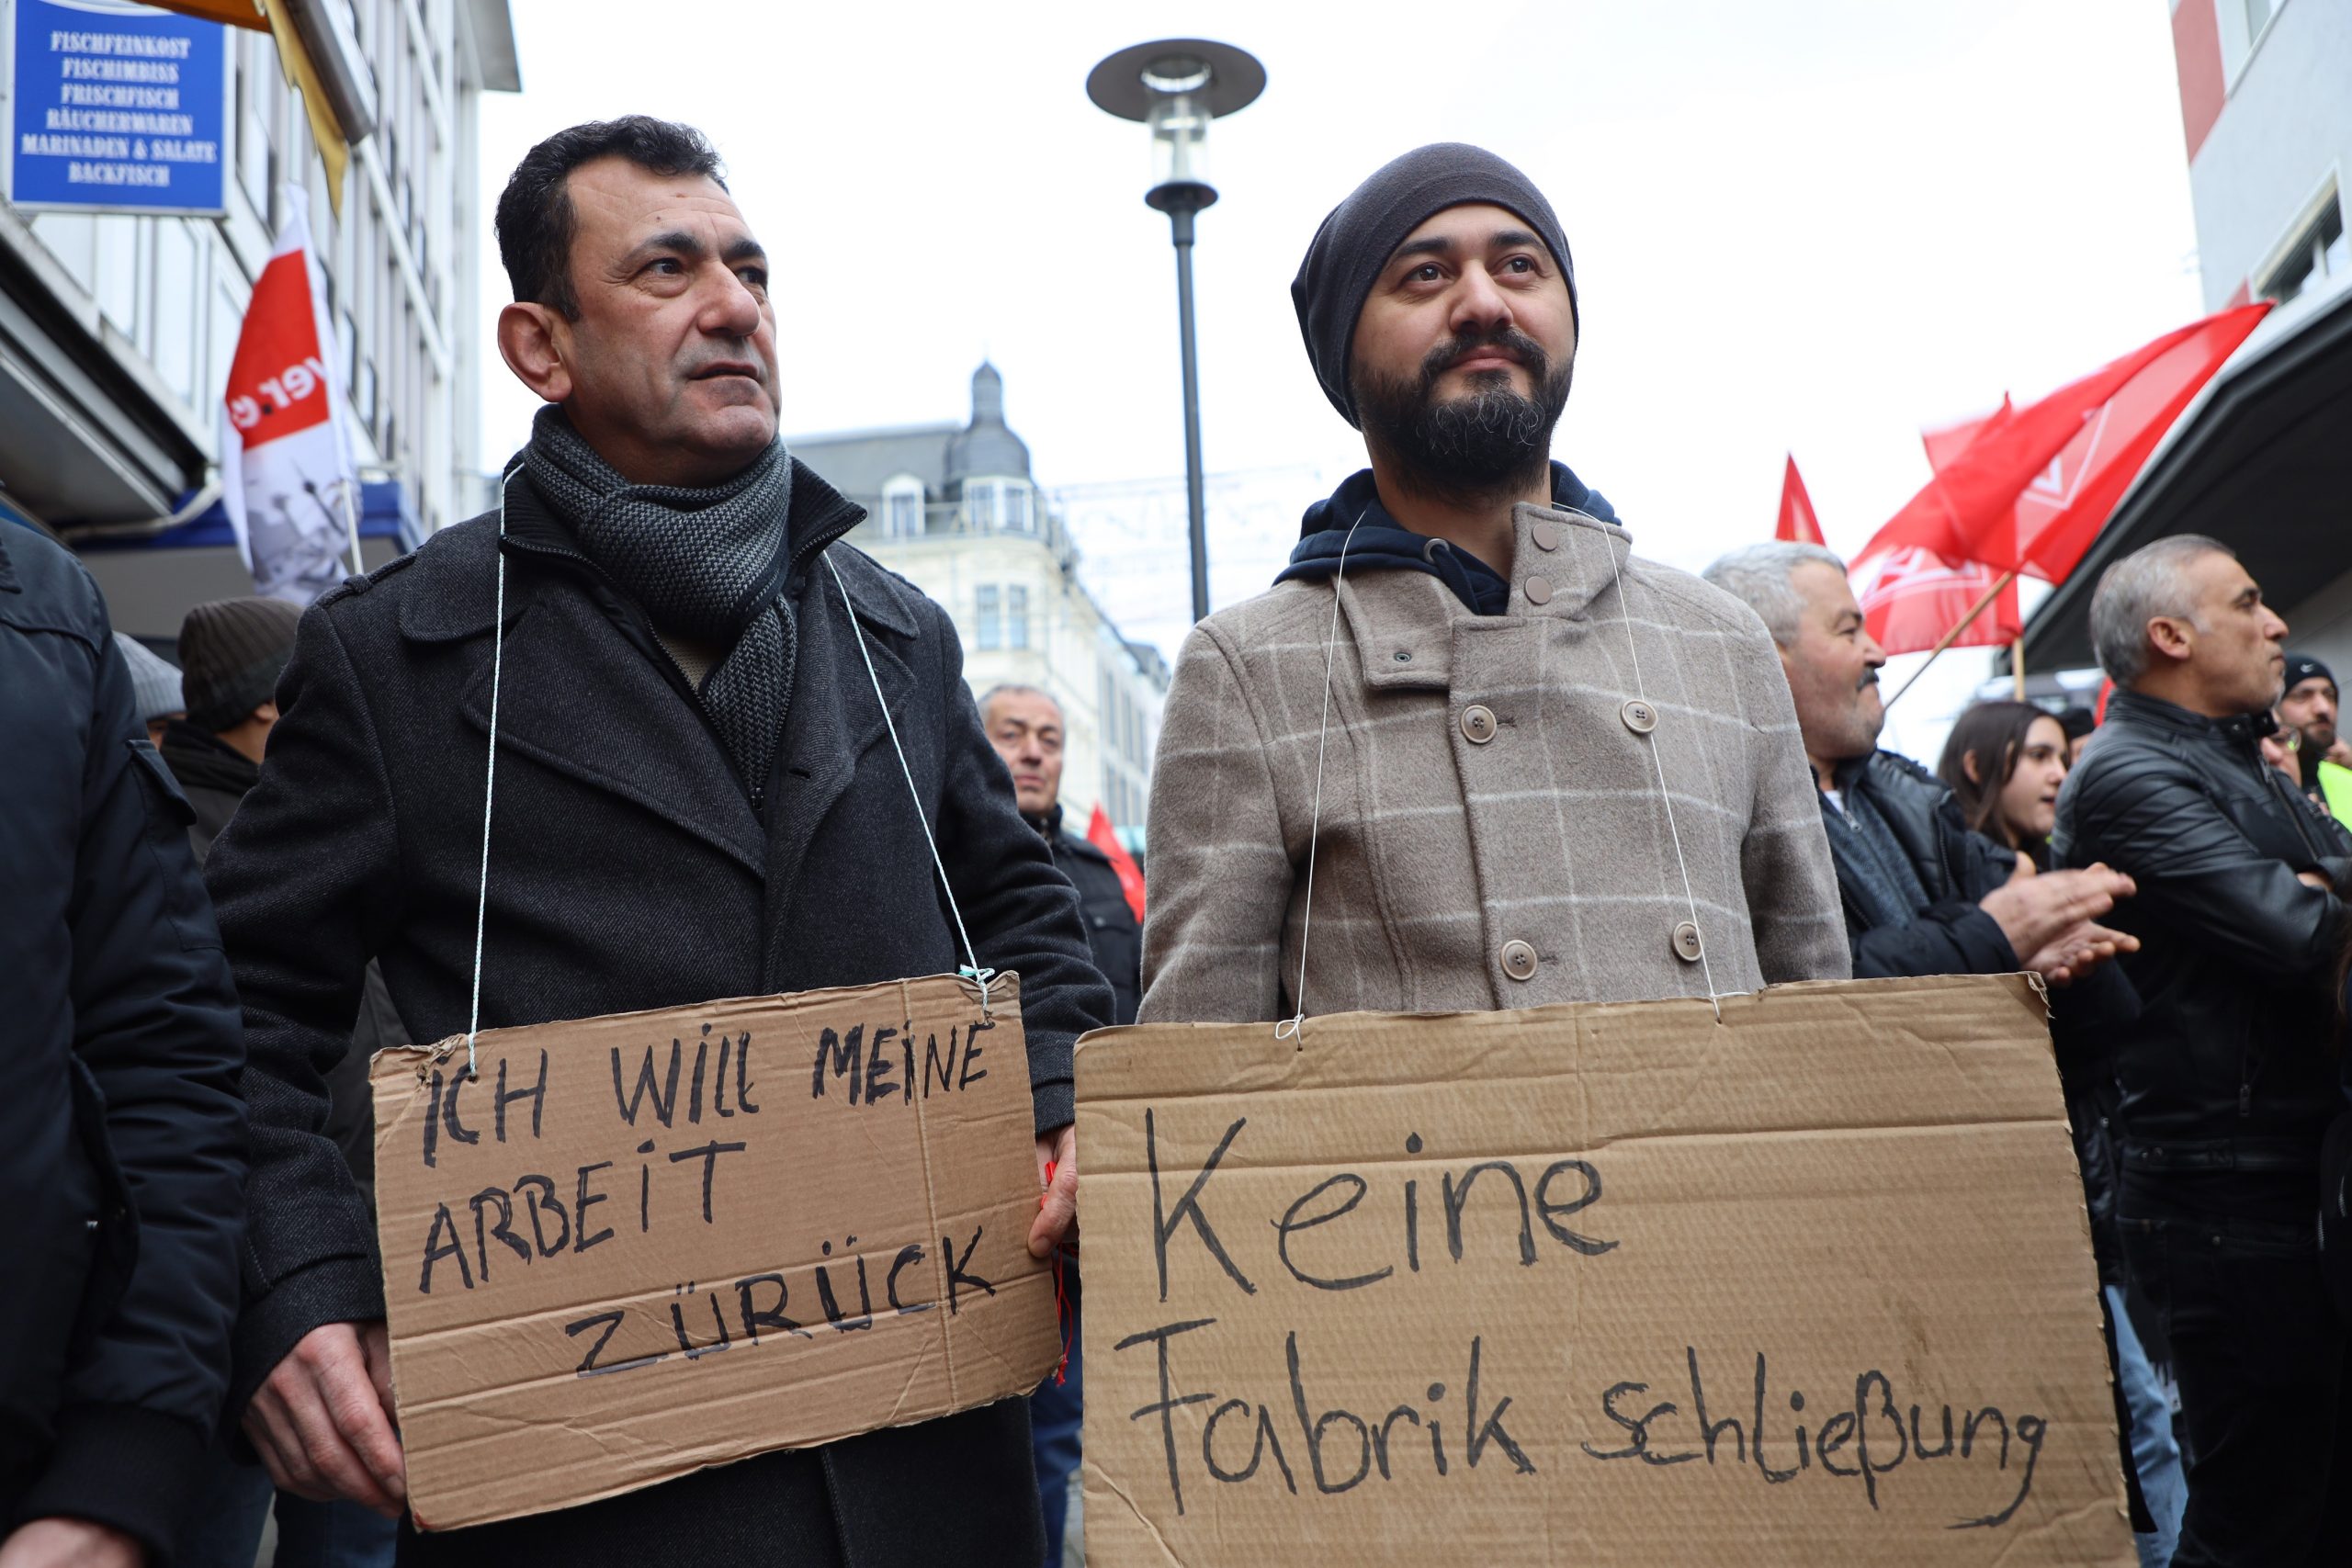 FISCHFEINKOST
FISCHIMBISS
FRISCHFISCH
RÄUCHERWAREN
MARINADEN & SALATE
BACKFISCH
ver.di
iCH WiLL MEiNE
ARBEiT
ZÜRÜCK
Keine
Fabrik schließung